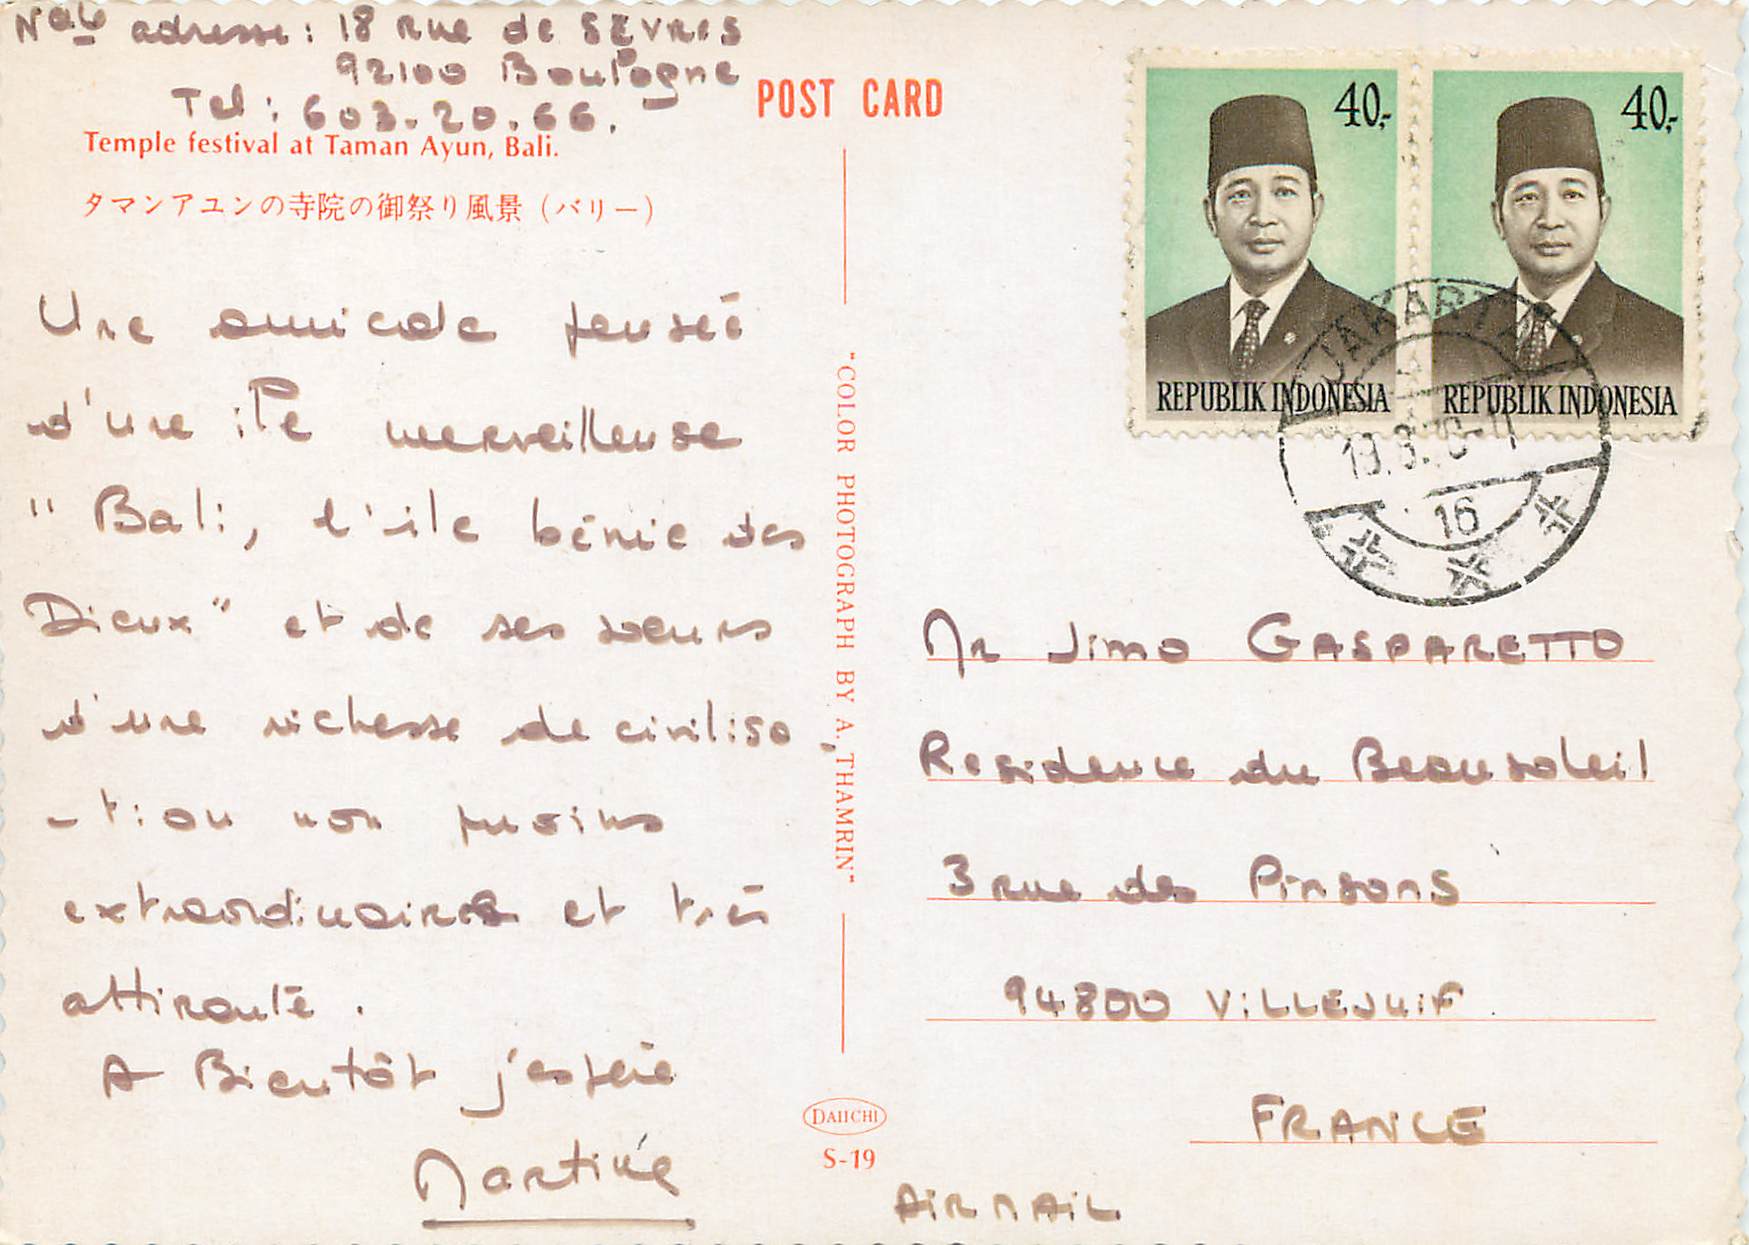 Nelle adresse : 18 Rue de SEVRES
92100 Boulogne
Tel : 603.20.66.
Temple festival at Taman Ayun, Bali.
タマンアユンの寺院の御祭り風景（バリー）
Une amicale pensée
d'une île merveilleuse
" Bali, l'île bénie des
Dieux" et de ses soeurs
d'une richesse de civilisa
-tion non moins
extraordinaire et très
attirante.
A Bientôt j'espère
Martine
POST CARD
"COLOR PHOTOGRAPH BY A. THAMRIN"
DAIICHI
S-19
40,-
REPUBLIK INDONESIA
40,-
REPUBLIK INDONESIA
JAKARTA
16
Mr Jimo GASPARETTO
Residence du Beausoleil
3 rue des Pinsons
94800 ViLLEJUiF
FRANCE
AiR MAiL